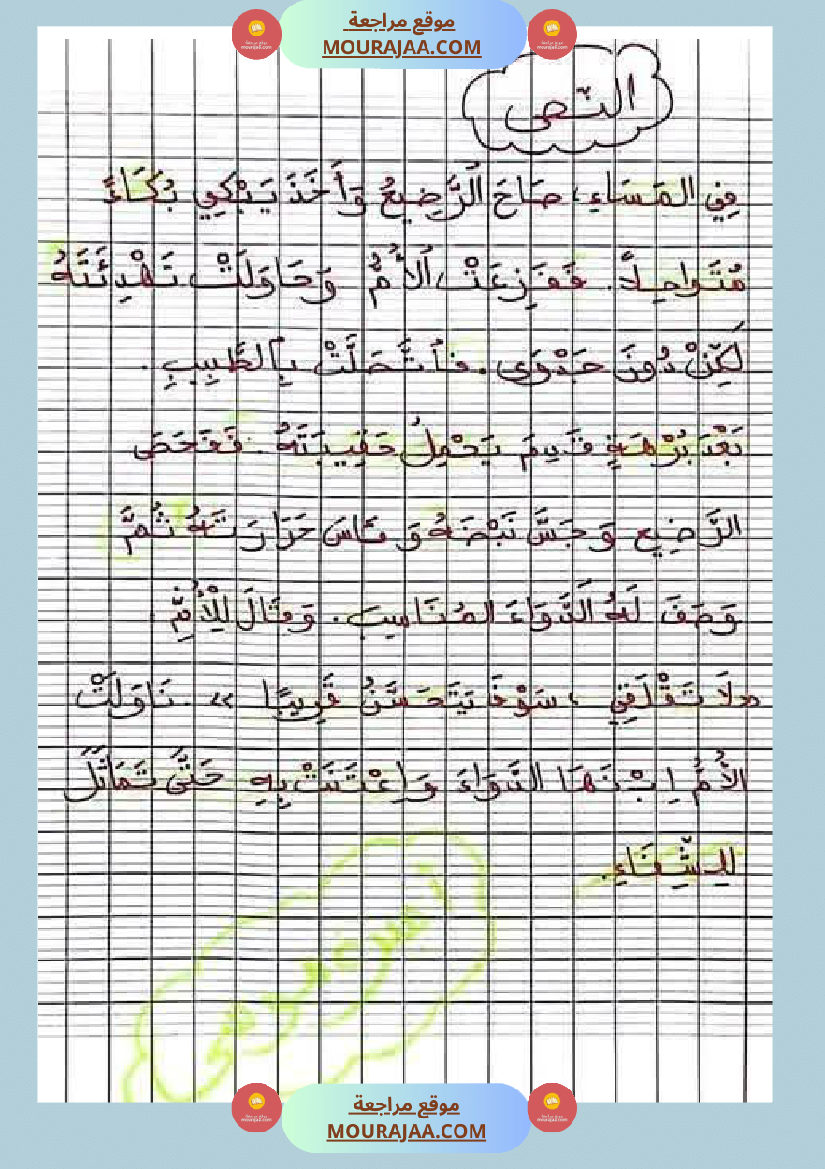 موقع مراجعة
MOURAJAA.COM
النّص
فِي المَسَاءِ، صَاحَ الرَّضِيعُ وَأَخَذَ يَبْكِي بُكَاءً
مُتَواصِلاً. فَفَزِعَتْ الأُمُّ وَحَاوَلَتْ تَهْدِئَتَهُ
لَكِنْ دُونَ جَدْوَى. فاتَّصَلَتْ بِالطَّبِيبِ.
بَعْدَ بُرْهَةٍ قَدِمَ يَحْمِلُ حَقِيبَتَهُ. فَفَحَصَ
الرَّضِيع وَجَسَّ نَبْضَهُ وَقَاسَ حَرَارَتَهُ ثُمَّ
وَصَفَ لَهُ الدَّوَاءَ المُنَاسِبَ. وَقَالَ لِلْأُمِّ:
«لَا تَقْلَقِي، سَوْفَ يَتَحَسَّنُ قَرِيبًا». نَاوَلَتْ
الأُمُّ اِبْنَهَا الدَّوَاءَ وَاِعْتَنَتْ بِهِ حَتَّى تَمَاثَلَ
لِلشِّفَاءِ.
موقع مراجعة
MOURAJAA.COM